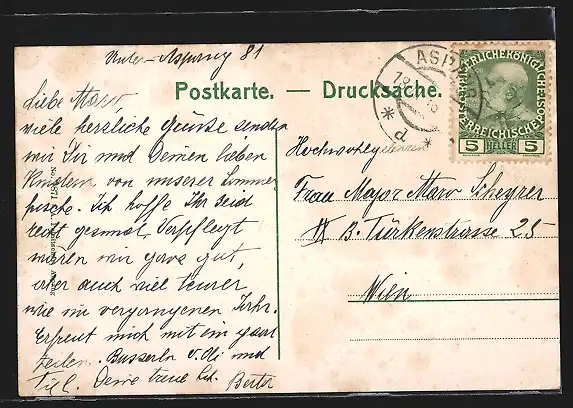 Unter-Aspang 81
Postkarte. — Drucksache.
Liebe Maro
viele herzliche Grüsse senden
wir Dir und Deinen lieben
Kindern von unserer Sommer-
frische. Ich hoffe Ihr seid
recht gesund, Verpflegt
wären wir ganz gut,
aber auch viel teurer
wie im vergangenen Jahr.
Erfreut mich mit ein paar
Zeilen. Busserln v. Oli und
Deine treue Berta
ASPANG
* d *
KAISERLICHE KÖNIGLICHE
ÖSTERREICHISCHE POST
5 HELLER 5
Hochwohlgeboren
Frau Major Maro Scheyrer
IX B. Türkenstrasse 25
Wien